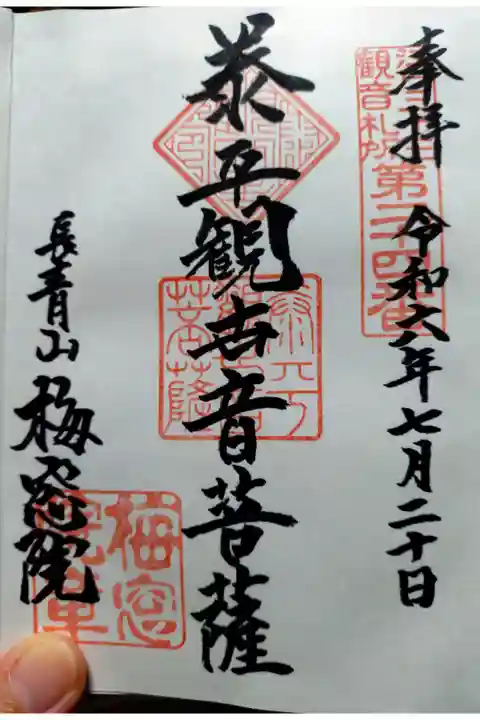 奉拝 令和六年七月二十日
観音札所
第二十四番
泰平観世音菩薩
長青山 梅窓院
梅窓
院章